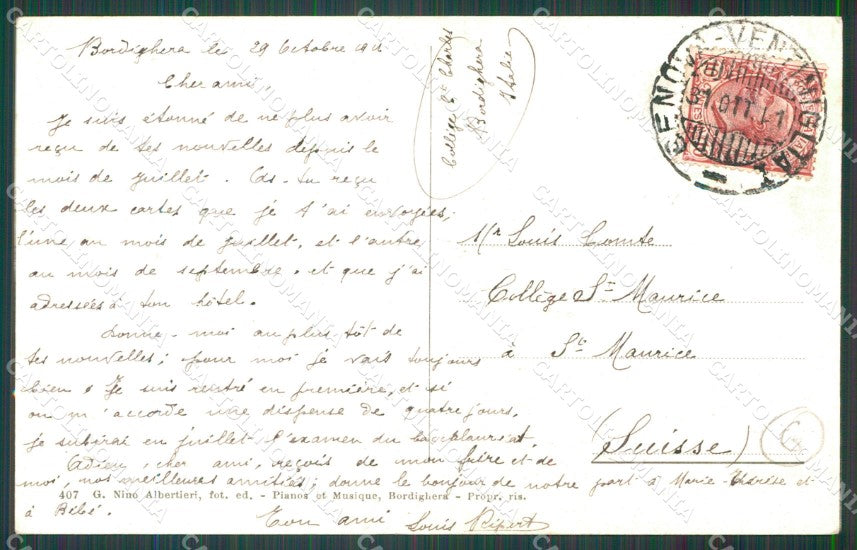 Bordighera le 29 Octobre 191
Cher ami
Je suis étonné de ne plus avoir
reçu de tes nouvelles depuis le
mois de juillet. As-tu reçu
les deux cartes que je t'ai envoyées,
l'une au mois de juillet, et l'autre
au mois de septembre, et que j'ai
adressées à ton hôtel.
Donne-moi au plus tôt de
tes nouvelles; pour moi je vais toujours
bien. Je suis rentré en première, et si
on m'accorde une dispense de quatre jours,
je subirai en juillet l'examen du baccalauréat.
Adieu, cher ami, reçois de mon frère et de
moi, nos meilleures amitiés; donne le bonjour de notre part à Marie-Thérèse et
à Bébé.
Ton ami Louis Ripert
407 G. Nino Albertieri, fot. ed. - Pianos et Musique, Bordighera - Propr. ris.
Collège St Charles
Bordighera
Italie
GENOVA-VENTIMIGLIA
31 OTT
Mr Louis Comte
Collège St Maurice
à St Maurice
(Suisse)
CARTOLINOMANIA